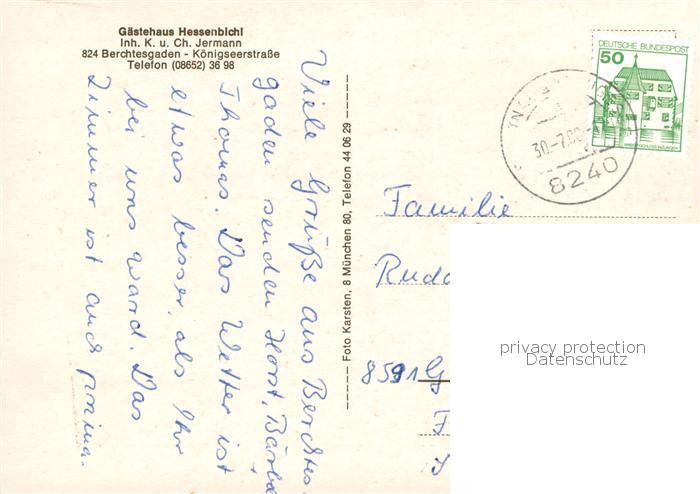 Gästehaus Hessenbichl
Inh. K. u. Ch. Jermann
824 Berchtesgaden - Königseerstraße
Telefon (08652) 36 98
Viele Grüße aus Berchtes-
gaden senden Horst, Bärbe
Thomas. Das Wetter ist
etwas besser, als Ihr
bei uns ward. Das
Zimmer ist auch prima.
Foto Karsten, 8 München 80, Telefon 44 06 29
DEUTSCHE BUNDESPOST
50
WASSERSCHLOSS INZLINGEN
30.-7.80
8240
Familie
8591
privacy protection
Datenschutz